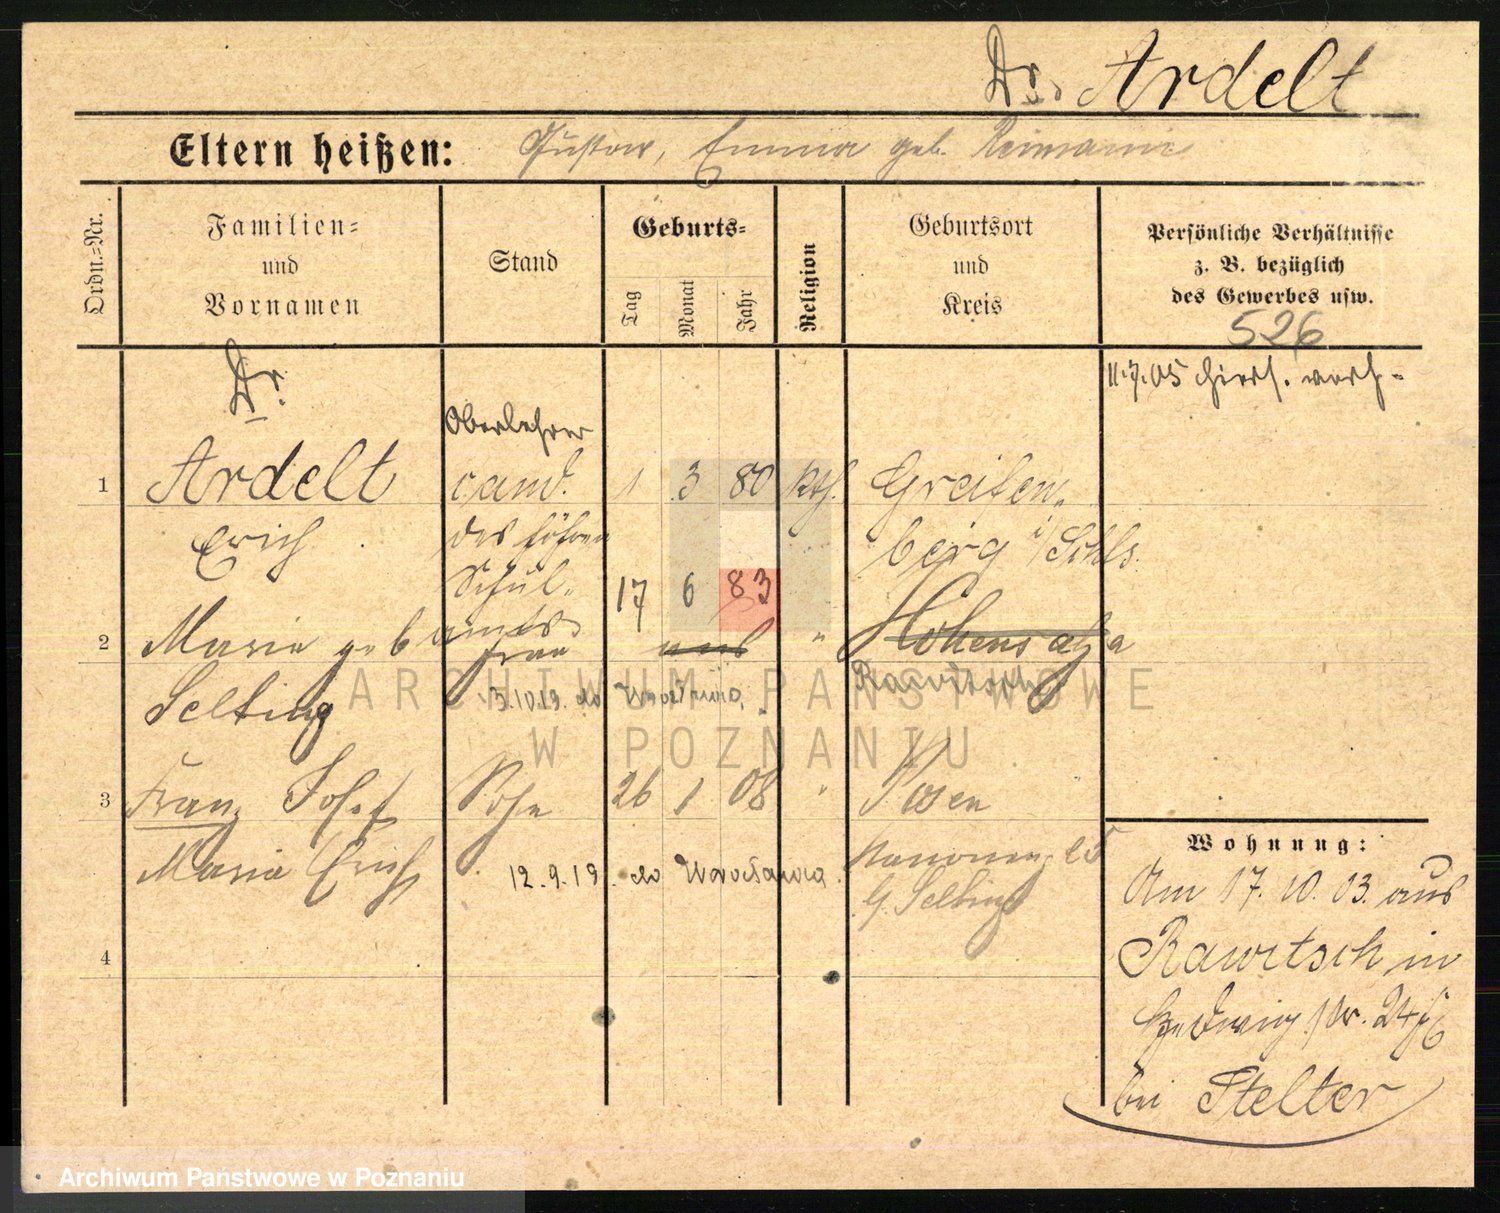 Dr. Ardelt
Eltern heißen: Gustav, Emma geb. Reimann
Ordn.-Nr.
Familien-
und
Vornamen
Stand
Geburts-
Tag
Monat
Jahr
Religion
Geburtsort
und
Kreis
Persönliche Verhältnisse
z. B. bezüglich
des Gewerbes usw.
526
11.7.05
Dr.
Oberlehrer
1 Ardelt cand. 1 3 80 kth. Greifen-
Erich des höher berg i/Schls.
Schul-
amts
17 6 83
2 Marie geb Frau " Hohensalza
Selting 3.10.19. do Wrocławia. Rawitsch
3 Franz Josef Sohn 26 1 08 " Posen
Maria Erich 12.9.19. do Wrocławia.
Selting
4
Wohnung:
Am 17.10.03. aus
Rawitsch in
Hedwigstr. 24
bei Stelter
ARCHIWUM PAŃSTWOWE
W POZNANIU
Archiwum Państwowe w Poznaniu